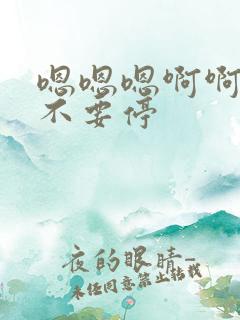 嗯嗯嗯啊啊
不要停
夜的眼睛-
未经同意禁止转载